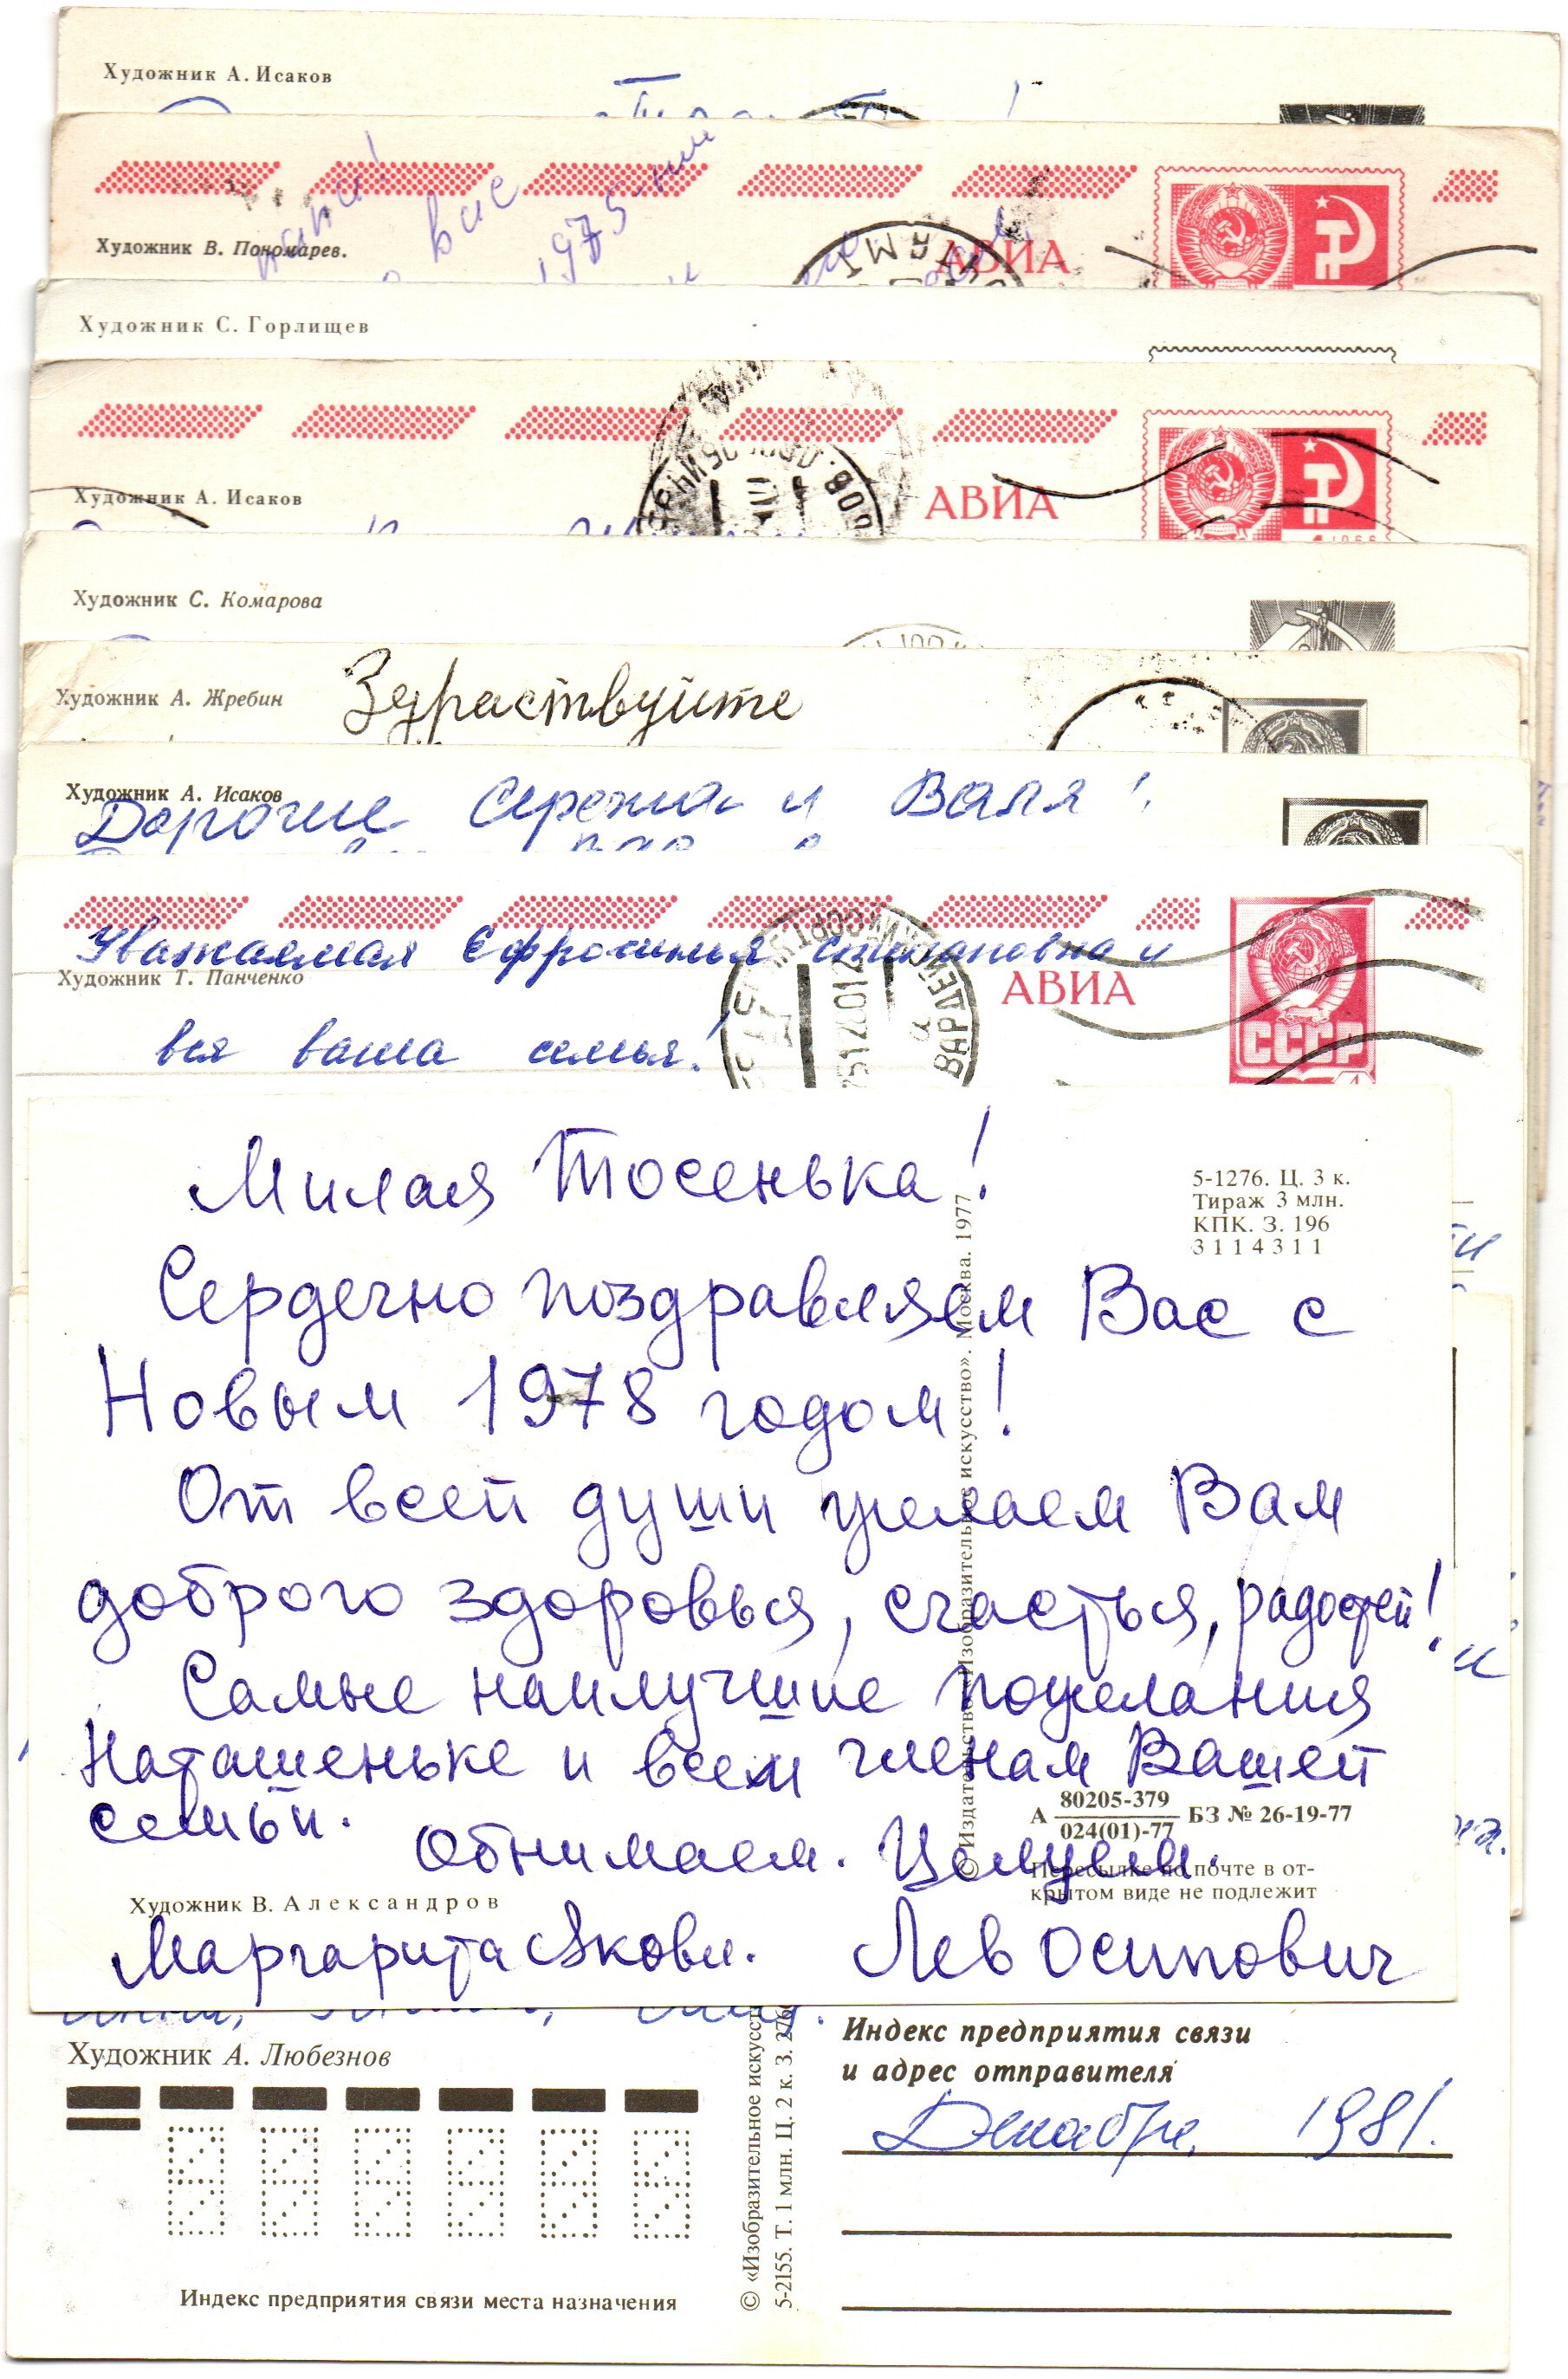 Художник А. Исаков
Художник В. Пономарев.
Вас
1975-ым
АВИА
Художник С. Горлищев
АВИА
Художник А. Исаков
Художник С. Комарова
Художник А. Жребин
Здраствуйте
Художник А. Исаков
Дорогие Сережа и Валя!
Уважаемая Ефросинья Степановна и
Художник Т. Панченко
АВИА
СССР
вся ваша семья!
Милая Тосенька!
5-1276. Ц. 3 к.
Тираж 3 млн.
КПК. З. 196
3114311
Сердечно поздравляем Вас с
Новым 1978 годом!
От всей души желаем Вам
доброго здоровья, счастья, радостей!
Самые наилучшие пожелания
Наташеньке и всем членам Вашей
семьи.
Обнимаем. Целуем.
© Издательство «Изобразительное искусство». Москва. 1977
А 80205-379/024(01)-77 БЗ № 26-19-77
Пересылке по почте в от-
крытом виде не подлежит
Художник В. Александров
Маргарита Яковл. Лев Осипович
Художник А. Любезнов
© «Изобразительное искусст
5-2155. Т. 1 млн. Ц. 2 к. З. 276
Индекс предприятия связи
и адрес отправителя
Декабрь 1981.
Индекс предприятия связи места назначения